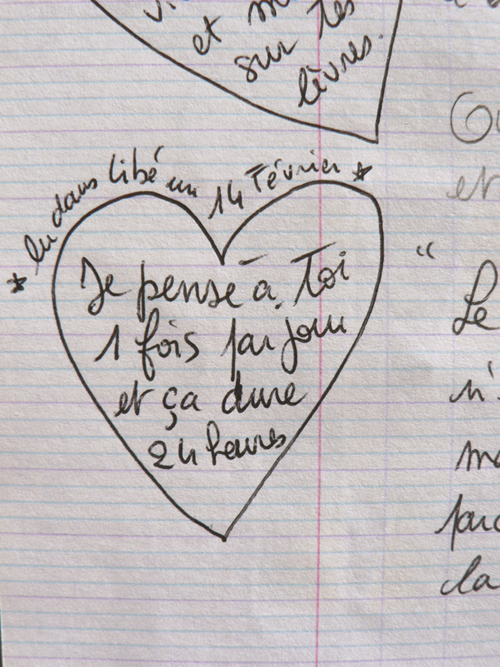 et m
sur tes
lèvres.
* lu dans Libé un 14 Février *
Je pense à Toi
1 fois par jour
et ça dure
24 heures
et
"
Le
la